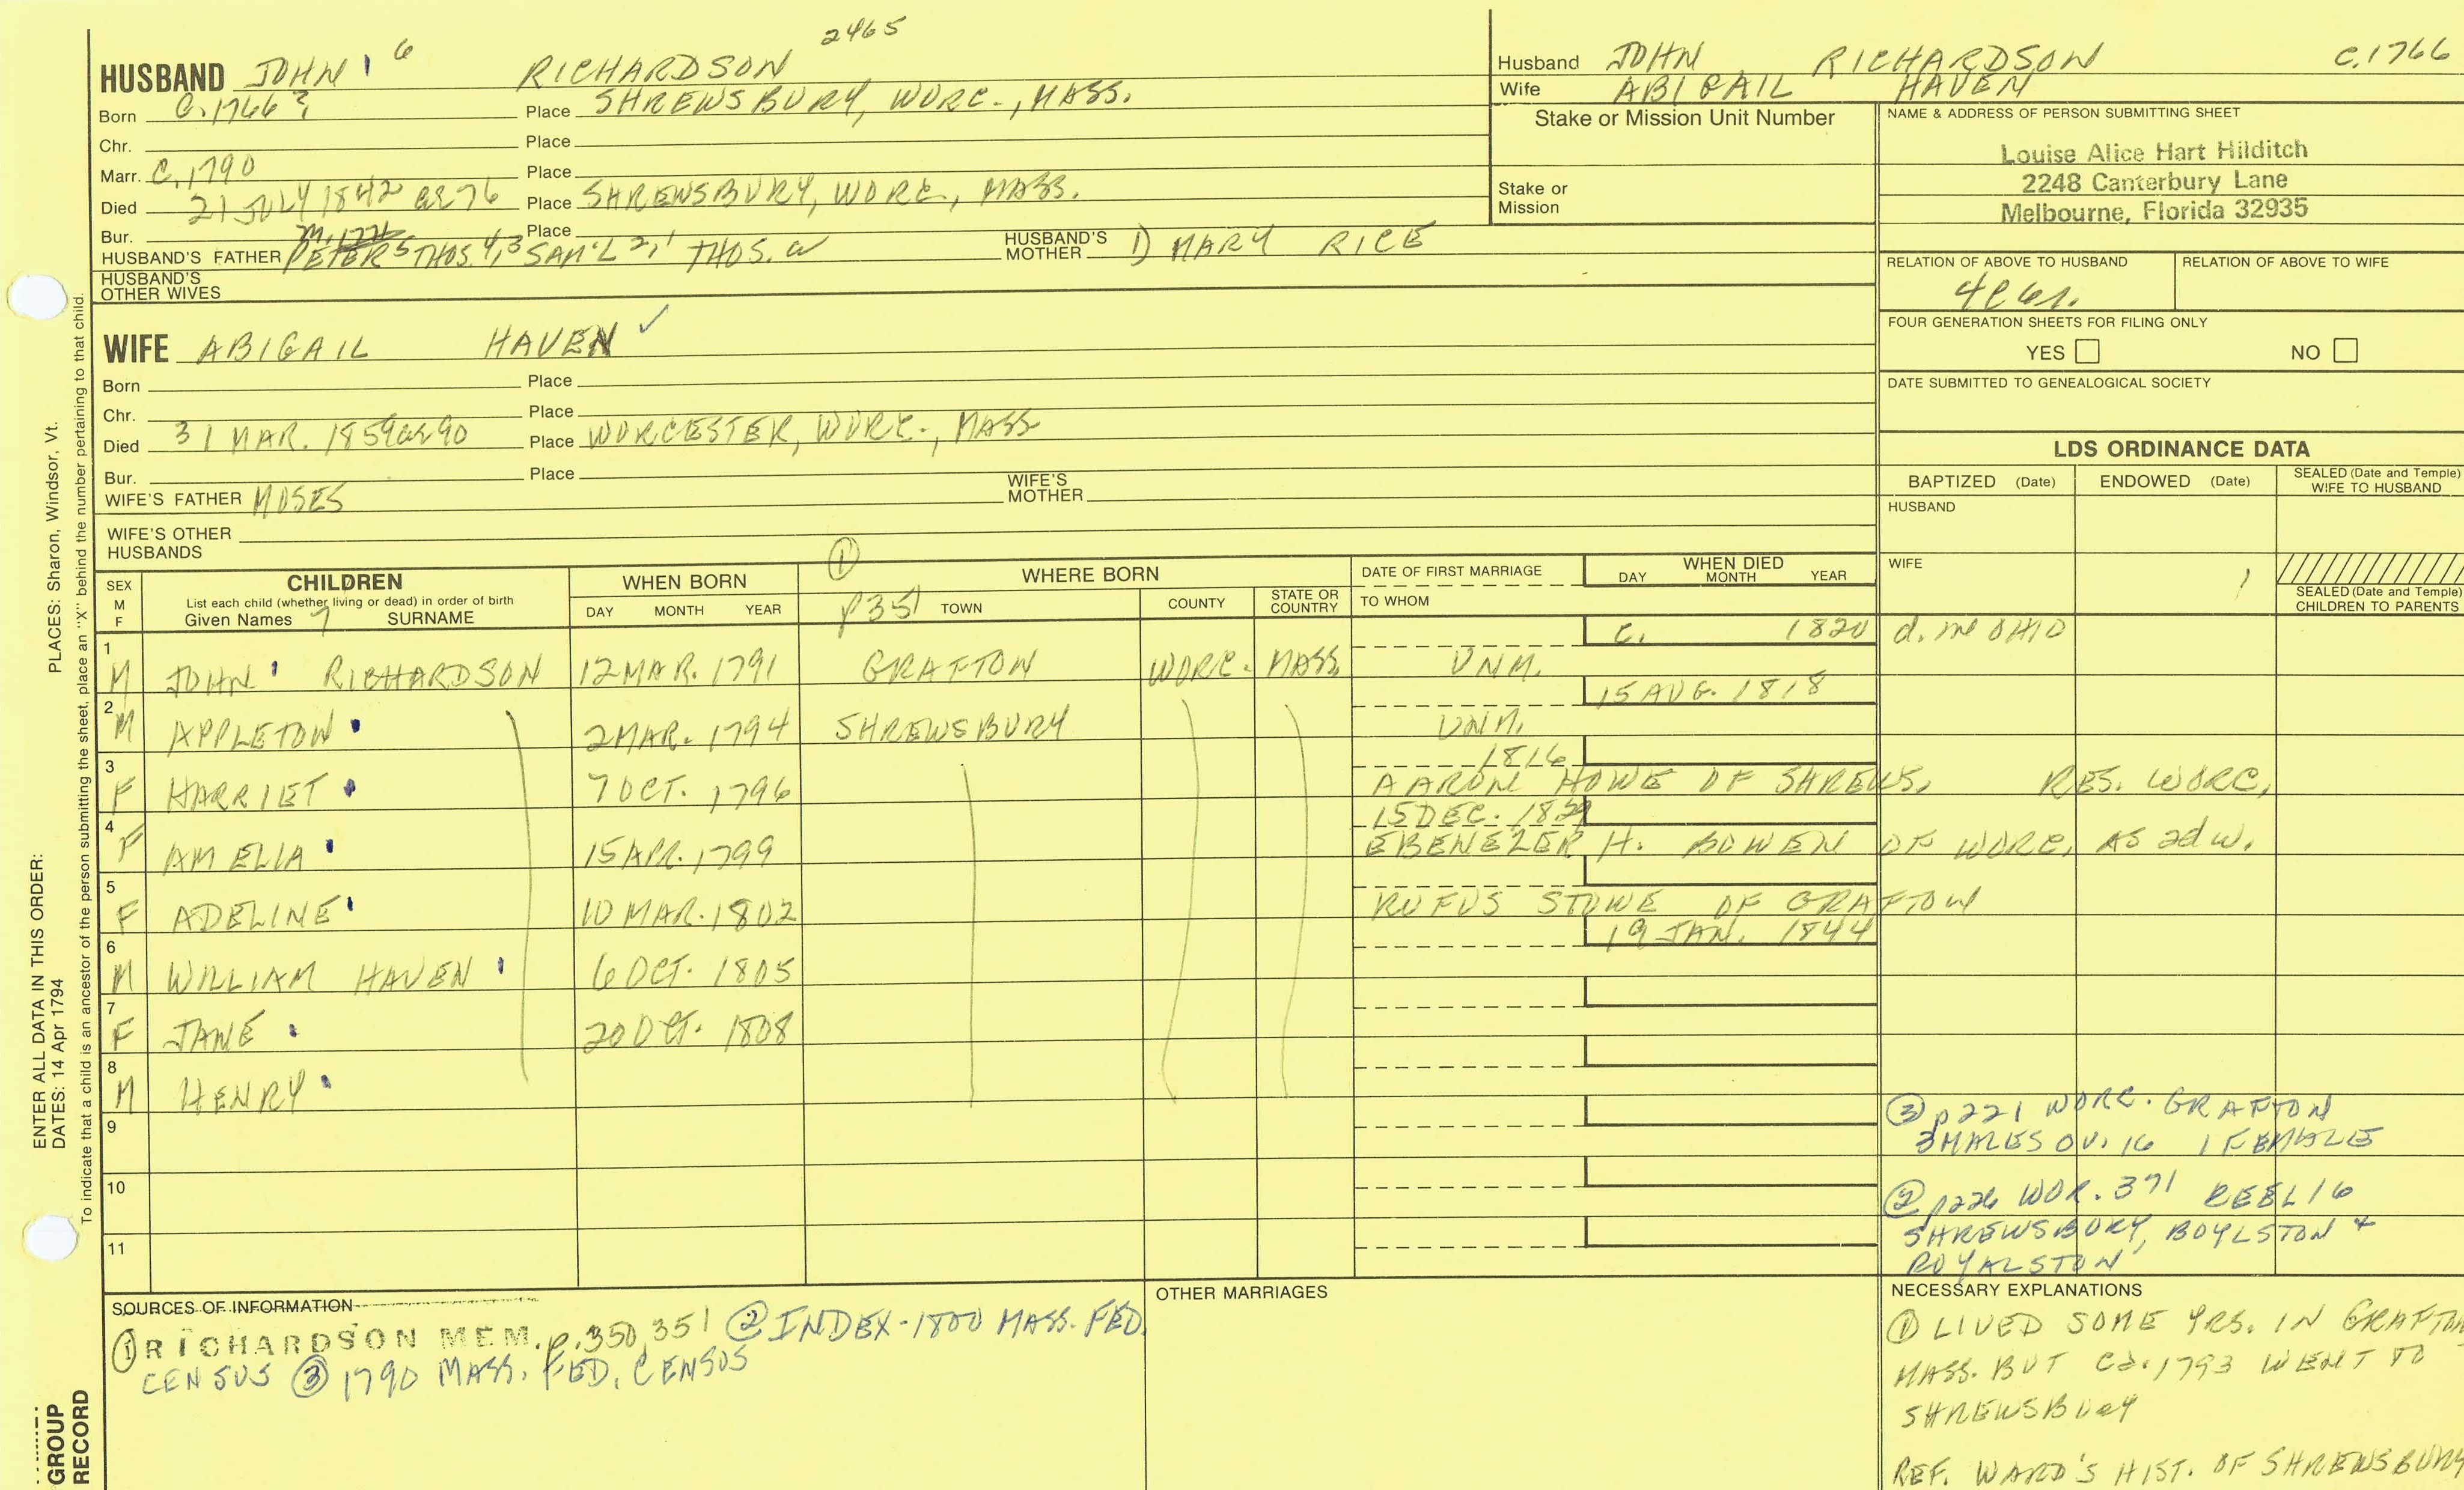 2465
HUSBAND JOHN 6 RICHARDSON
Born C.1766? Place SHREWSBURY, WORC., MASS.
Chr. Place
Marr. C.1790 Place
Died 21 JULY 1842 ae 76 Place SHREWSBURY, WORC, MASS.
Bur. Place
HUSBAND'S FATHER PETER 5 THOS. 4,3 SAM'L 2,1 THOS. HUSBAND'S MOTHER 1) MARY RICE
HUSBAND'S OTHER WIVES
Husband JOHN RICHARDSON C.1766
Wife ABIGAIL HAVEN
Stake or Mission Unit Number
Stake or Mission
NAME & ADDRESS OF PERSON SUBMITTING SHEET
Louise Alice Hart Hilditch
2248 Canterbury Lane
Melbourne, Florida 32935
RELATION OF ABOVE TO HUSBAND RELATION OF ABOVE TO WIFE
FOUR GENERATION SHEETS FOR FILING ONLY
YES NO
DATE SUBMITTED TO GENEALOGICAL SOCIETY
WIFE ABIGAIL HAVEN ✓
Born Place
Chr. Place
Died 31 MAR. 1859 ae 90 Place WORCESTER, WORC., MASS
Bur. Place
WIFE'S FATHER MOSES WIFE'S MOTHER
WIFE'S OTHER HUSBANDS
LDS ORDINANCE DATA
BAPTIZED (Date) ENDOWED (Date) SEALED (Date and Temple) WIFE TO HUSBAND
HUSBAND
WIFE
SEALED (Date and Temple) CHILDREN TO PARENTS
①
SEX M F CHILDREN WHEN BORN WHERE BORN DATE OF FIRST MARRIAGE WHEN DIED
List each child (whether living or dead) in order of birth DAY MONTH YEAR
Given Names 7 SURNAME DAY MONTH YEAR p351 TOWN COUNTY STATE OR COUNTRY TO WHOM
c. 1820 d. OHIO
1 M JOHN RICHARDSON 12 MAR. 1791 GRAFTON WORC. MASS UNM.
15 AUG. 1818
2 M APPLETON 2 MAR. 1794 SHREWSBURY UNM.
1816
3 F HARRIET 7 OCT. 1796 AARON HOWE OF SHREWS. RES. WORC.
15 DEC. 1839
4 F AMELIA 15 APR. 1799 EBENEZER H. BOWEN OF WORC. AS 2d w.
5 F ADELINE 10 MAR. 1802 RUFUS STOWE OF GRAFTON
19 JAN. 1844
6 M WILLIAM HAVEN 6 OCT. 1805
7 F JANE 20 OCT. 1808
8 M HENRY
9
10
11
③ p221 WORC. GRAFTON
3 MALES OV. 16 1 FEMALE
② p226 WOR. 371 REEL 16
SHREWSBURY, BOYLSTON +
ROYALSTON
SOURCES OF INFORMATION
① RICHARDSON MEM. p.350,351 ② INDEX-1800 MASS. FED.
CENSUS ③ 1790 MASS. FED. CENSUS
OTHER MARRIAGES
NECESSARY EXPLANATIONS
① LIVED SOME YRS. IN GRAFTON
MASS. BUT Ca. 1793 WENT TO
SHREWSBURY
REF. WARD'S HIST. OF SHREWSBURY
PLACES: Sharon, Windsor, Vt.
ENTER ALL DATA IN THIS ORDER:
DATES: 14 Apr 1794
To indicate that a child is an ancestor of the person submitting the sheet, place an "X" behind the number pertaining to that child.
GROUP
RECORD